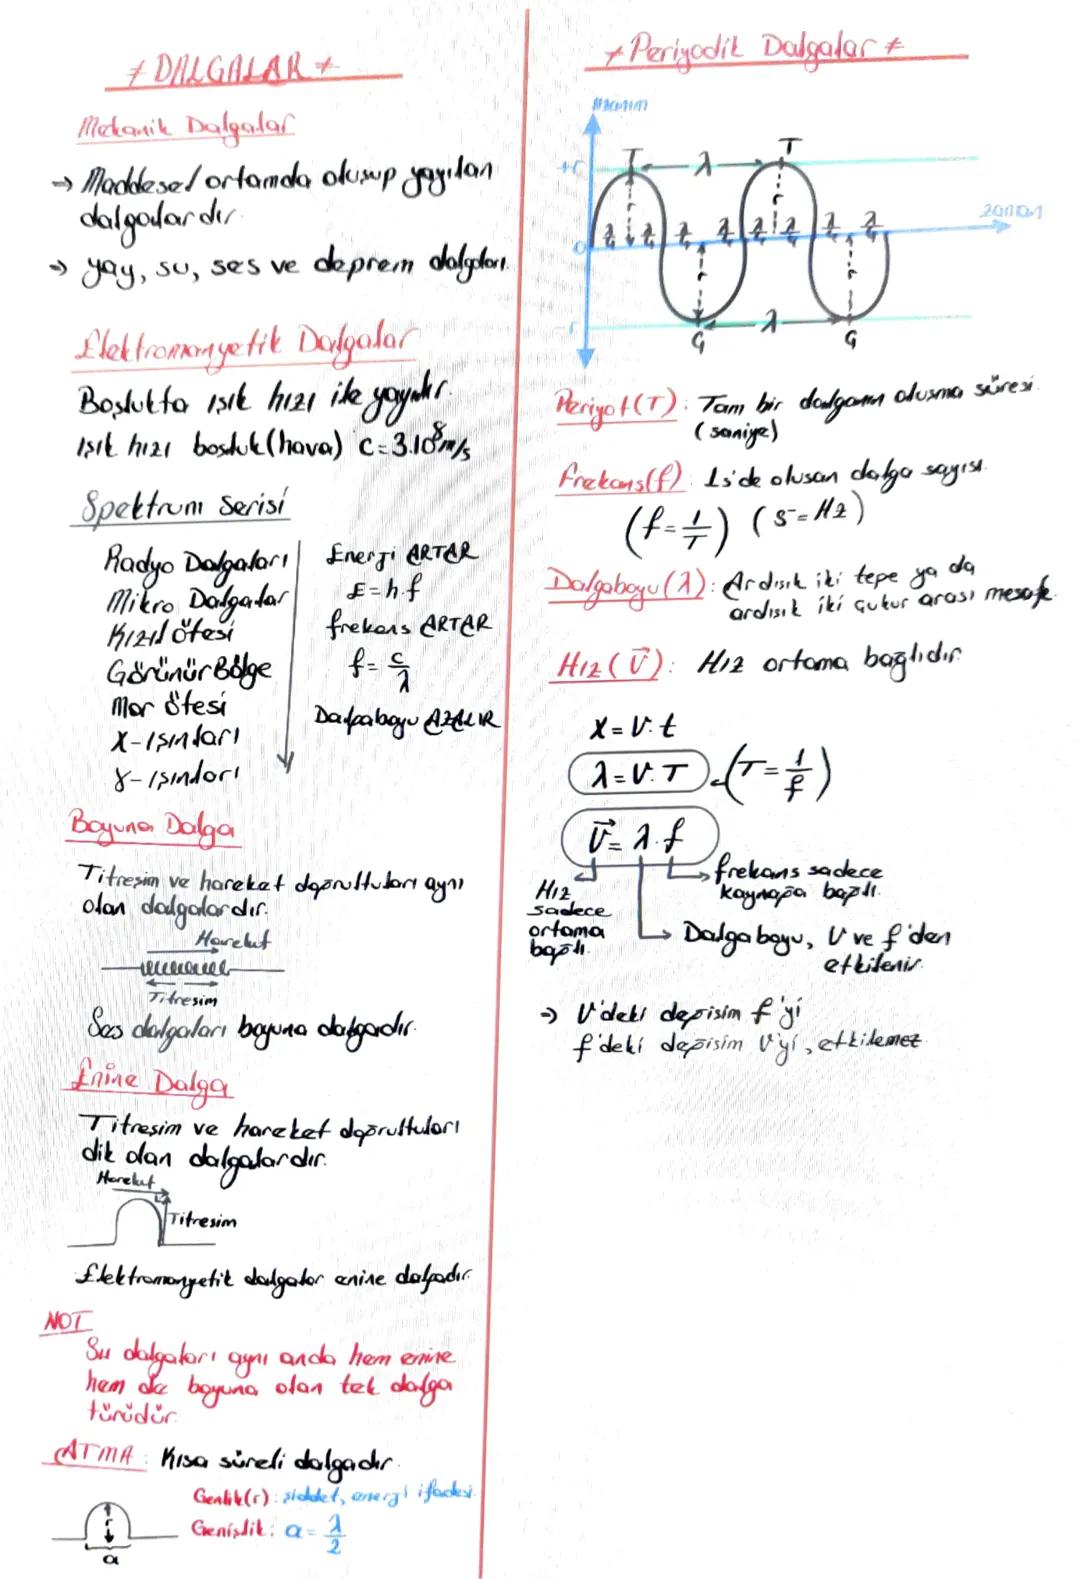 * DALGALAR *
Mekanik Dalgalar
→ Maddesel ortamda oluşup yayılan
dalgalardır.
→ yay, su, ses ve deprem dalgaları.
Elektromanyetik Dalgalar
Boşlukta ışık hızı ile yayılır.
Işık hızı boşluk (hava) c=3.10⁸m/s
Spektrum Serisi
Radyo Dalgaları
Mikro Dalgalar
Kızıl ötesi
Görünür Bölge
Mor ötesi
X-ışınları
γ-ışınları
Enerji ARTAR
E=h.f
frekans ARTAR
f= c/λ
Dalgaboyu AZALIR
Boyuna Dalga
Titreşim ve hareket doğrultuları aynı
olan dalgalardır.
Hareket
Titresim
Ses dalgaları boyuna dalgadır.
Enine Dalga
Titreşim ve hareket doğrultuları
dik olan dalgalardır.
Hareket
Titresim
Elektromanyetik dalgalar enine dalgadır.
NOT
Su dalgaları aynı anda hem enine
hem de boyuna olan tek dalga
türüdür.
ATMA: Kısa süreli dalgadır.
Genlik(r): şiddet, enerji ifadesi.
Genişlik: a= λ/2
r
a
* Periyodik Dalgalar *
zaman
+r
T λ T
r r
λ/4 λ/4 λ/4 λ/4 λ/4 λ/4 λ/4 λ/4
0
r r
-r
λ
G G
Periyot(T): Tam bir dalganın oluşma süresi.
(saniye)
Frekans(f): 1s'de oluşan dalga sayısı.
(f=1/T) (s⁻=Hz)
Dalgaboyu(λ): Ardışık iki tepe ya da
ardışık iki çukur arası mesafe.
Hız(V⃗): Hız ortama bağlıdır.
X=V.t
λ=V.T (T=1/f)
V⃗=λ.f
frekans sadece
kaynağa bağlı.
Hız
sadece
ortama
bağlı.
Dalga boyu, V ve f'den
etkilenir.
→ V'deki değişim f'yi
f'deki değişim V'yi, etkilemez.